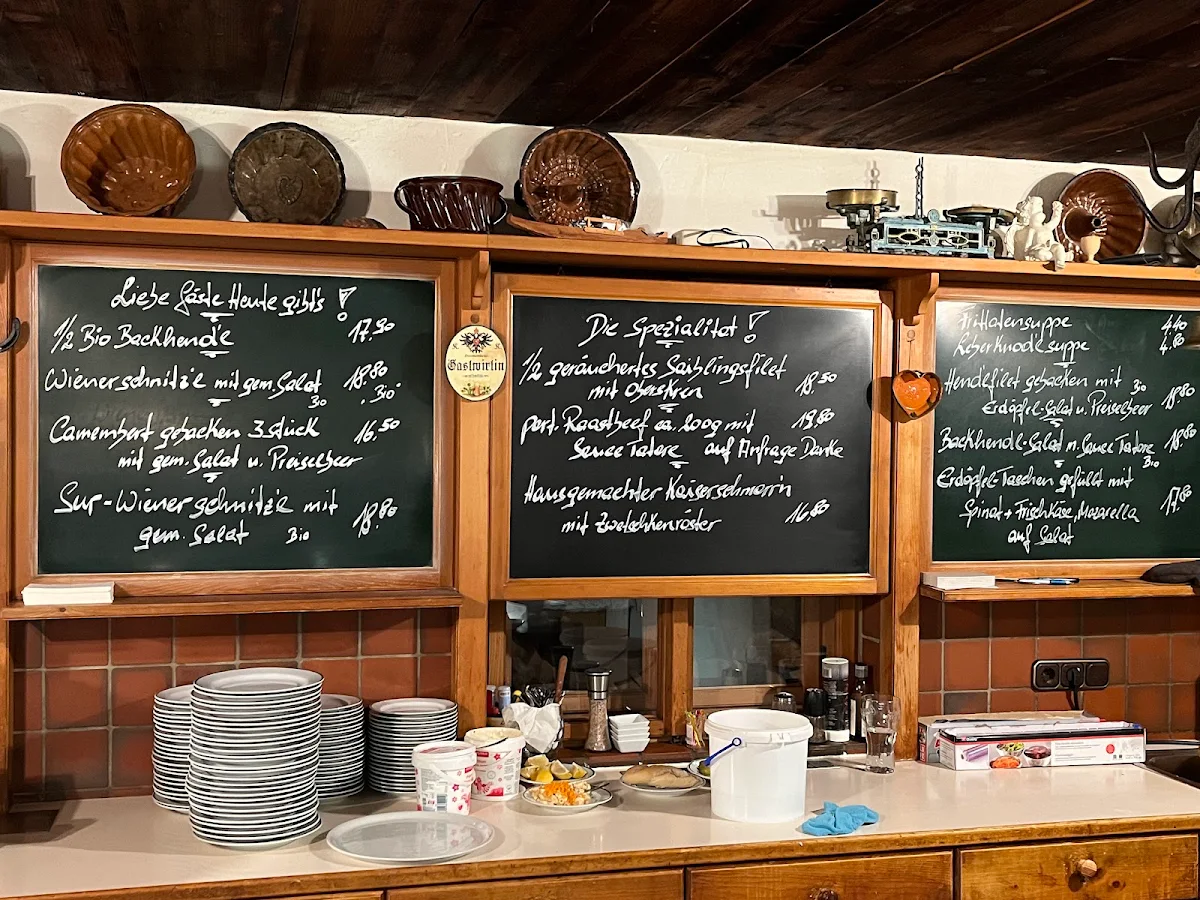 Liebe Gäste Heute gibt's !
1/2 Bio Backhendle 17,90
Wienerschnitzle mit gem. Salat 18,80
Bio . Bio
Camembert gebacken 3 Stück 16,50
mit gem. Salat u. Preiselbeer
Sur-Wienerschnitzle mit 18,80
gem. Salat Bio
Gastwirtin
Die Spezialität !
1/2 geräuchertes Saiblingsfilet 18,50
mit Oberskren
port. Roastbeef ca. 200g mit 19,80
Sauce Tatare auf Anfrage Danke
Hausgemachter Kaiserschmarr'n 16,80
mit Zwetschkenröster
Frittatensuppe 4,40
Leberknödlsuppe 4,80
Hendlfilet gebacken mit Bio 18,80
Erdäpfel-Salat u. Preiselbeer
Backhendl-Salat m. Sauce Tatare 18,80
Bio
Erdäpfel-Taschen gefüllt mit 17,80
Spinat + Frischkäse, Mozarella
auf Salat